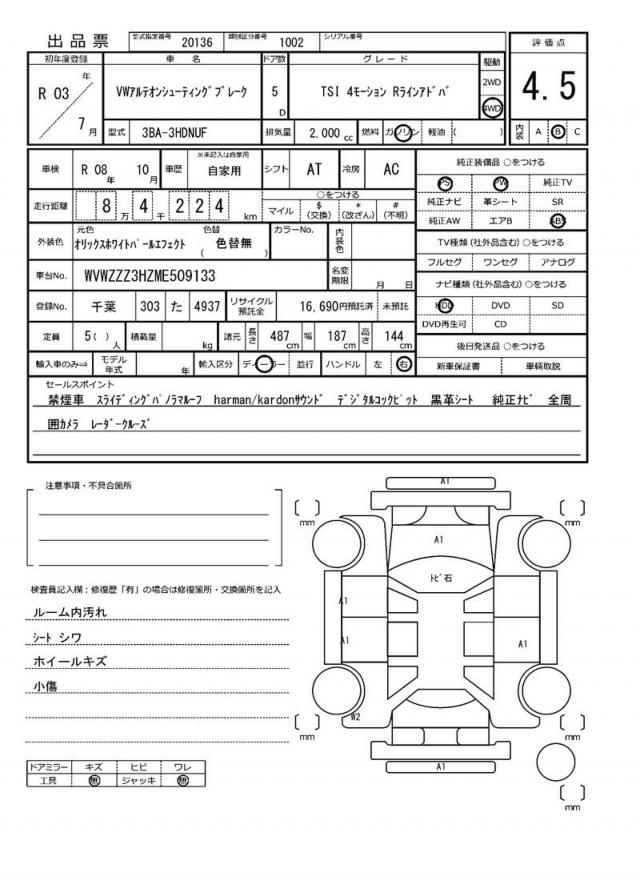 出品票 型式指定番号 20136 類別区分番号 1002 シリアル番号
初年度登録 車名 ドア数 グレード 駆動 評価点
R 03 年 7 月 VWアルテオンシューティングブレーク 5 D TSI 4モーション Rラインアドバ 2WD 4WD 4.5
型式 3BA-3HDNUF 排気量 2,000 cc 燃料 ガソリン 軽油 ( ) 内装 A B C
車検 R 08 年 10 月 車歴 ※未記入は自家用 自家用 シフト AT 冷房 AC 純正装備品 ○をつける
PS PW 純正TV
走行距離 8 万 4 千 2 2 4 km ○をつける マイル $ (交換) * (改ざん) # (不明) 純正ナビ 革シート SR
純正AW エアB ABS
外装色 元色 オリックスホワイトパールエフェクト 色替 ( 色替無 ) カラーNo. 内装色 TV種類 (社外品含む) ○をつける
フルセグ ワンセグ アナログ
車台No. WVWZZZ3HZME509133 名変期限 月 日 ナビ種類 (社外品含む) ○をつける
登録No. 千葉 303 た 4937 リサイクル預託金 16,690円預託済 未預託 HDD DVD SD
DVD再生可 CD
定員 5 ( ) 人 積載量 kg 諸元 長さ 487 cm 幅 187 cm 高さ 144 cm 後日発送品 ○をつける
輸入車のみ⇒ モデル年式 年 輸入区分 ディーラー 並行 ハンドル 左 右 新車保証書 車輌取説
セールスポイント
禁煙車 スライディングパノラマルーフ harman/kardonサウンド デジタルコックピット 黒革シート 純正ナビ 全周
囲カメラ レーダークルーズ
注意事項・不具合箇所
A1
mm mm
A1
トビ石
検査員記入欄：修復歴「有」の場合は修復箇所・交換箇所を記入
A1
ルーム内汚れ
シート シワ
A1 A1
ホイールキズ
小傷
W2
mm mm
ドアミラー キズ ヒビ ワレ
A1
工具 無 ジャッキ 無
mm